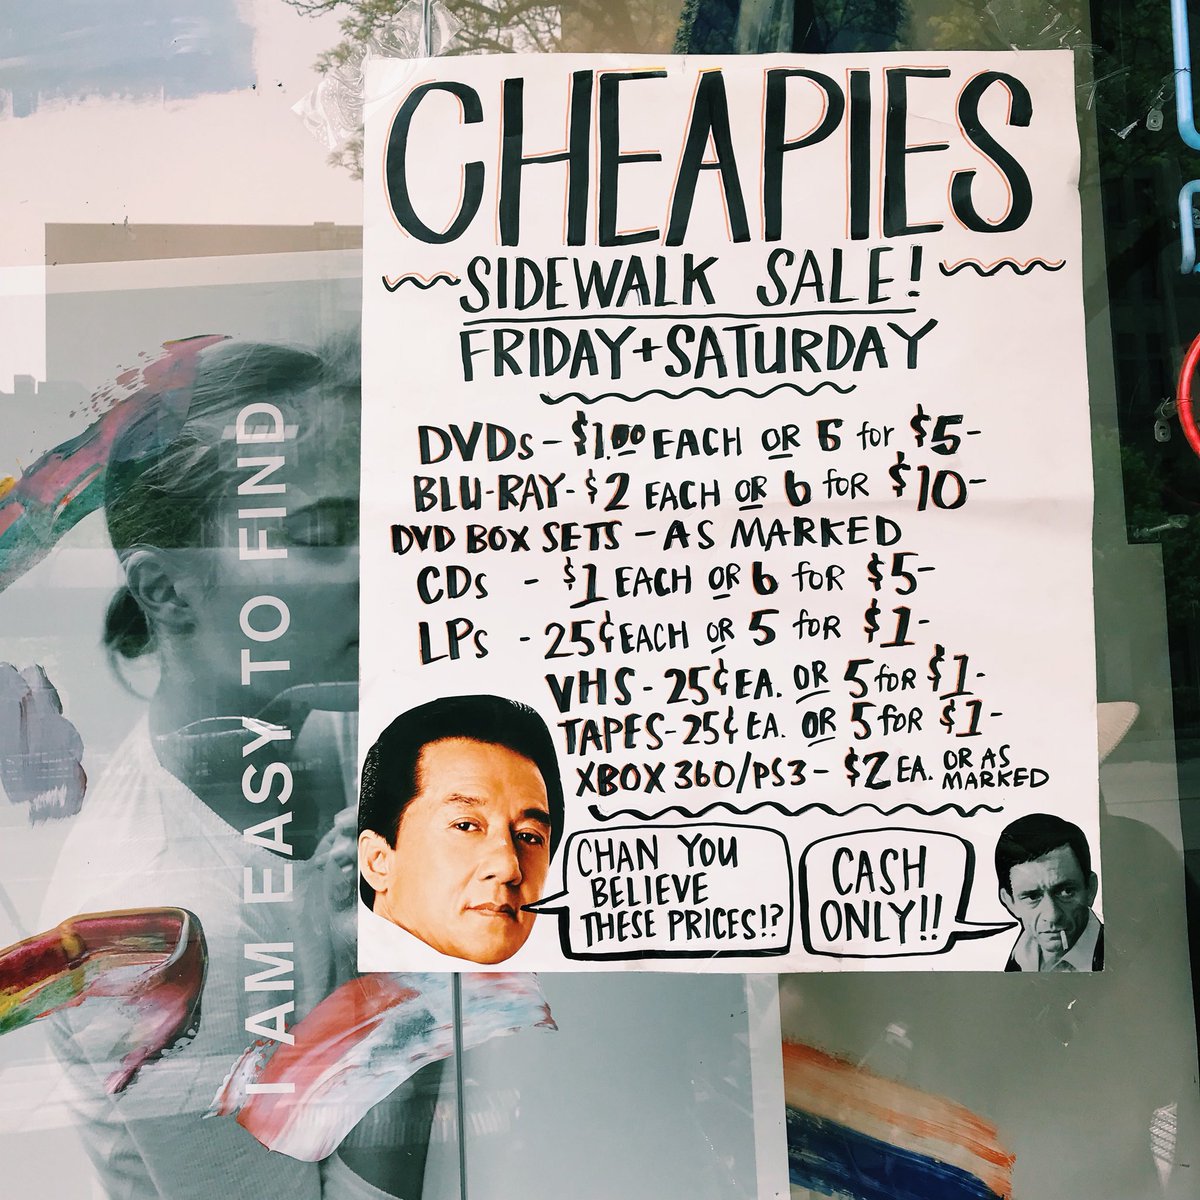 CHEAPIES
SIDEWALK SALE!
FRIDAY+SATURDAY
DVDs - $1.00 EACH OR 6 for $5-
BLU-RAY- $2 EACH OR 6 for $10-
DVD BOX SETS - AS MARKED
CDs - $1 EACH OR 6 for $5-
LPs - 25¢ EACH OR 5 for $1-
VHS - 25¢ EA. OR 5 for $1-
TAPES- 25¢ EA. OR 5 for $1-
XBOX 360/PS3 - $2 EA. OR AS
MARKED
CHAN YOU
BELIEVE
THESE PRICES!?
CASH
ONLY!!
I AM EASY TO FIND